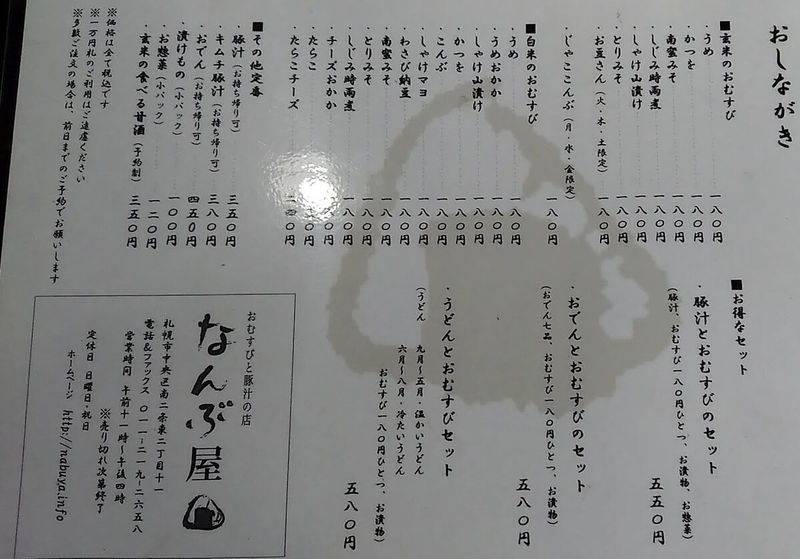 おしながき
■玄米のおむすび
・うめ 一八〇円
・かつを 一八〇円
・南蛮みそ 一八〇円
・しじみ時雨煮 一八〇円
・しゃけ山漬け 一八〇円
・とりみそ 一八〇円
・お豆さん(火・木・土限定) 一八〇円
・じゃここんぶ(月・水・金限定) 一八〇円
■白米のおむすび
・うめ 一八〇円
・うめおかか 一八〇円
・しゃけ山漬け 一八〇円
・かつを 一八〇円
・こんぶ 一八〇円
・しゃけマヨ 一八〇円
・わさび納豆 一八〇円
・南蛮みそ 一八〇円
・とりみそ 一八〇円
・しじみ時雨煮 一八〇円
・チーズおかか
・たらこ
・たらこチーズ
■その他定番
・豚汁(お持ち帰り可) 三五〇円
・キムチ豚汁(お持ち帰り可) 三八〇円
・おでん(お持ち帰り可) 四五〇円
・漬けもの(小パック) 一〇〇円
・お惣菜(小パック) 一二〇円
・玄米の食べる甘酒(予約制) 三五〇円
※価格は全て税込です
※一万円札のご利用はご遠慮ください
※多数ご注文の場合は、前日までのご予約でお願いします
■お得なセット
・豚汁とおむすびのセット
(豚汁、おむすび一八〇円ひとつ、お漬物、お惣菜)
五五〇円
・おでんとおむすびのセット
(おでん七品、おむすび一八〇円ひとつ、お漬物)
五八〇円
・うどんとおむすびセット
(うどん 九月〜五月・温かいうどん
六月〜八月・冷たいうどん
おむすび一八〇円ひとつ、お漬物)
五八〇円
おむすびと豚汁の店
なんぶ屋
札幌市中央区南二条東二丁目十一
電話&ファックス 〇一一-二一九-二六五八
営業時間 午前十一時〜午後四時
※売り切れ次第終了
定休日 日曜日・祝日
ホームページ http://nabuya.info